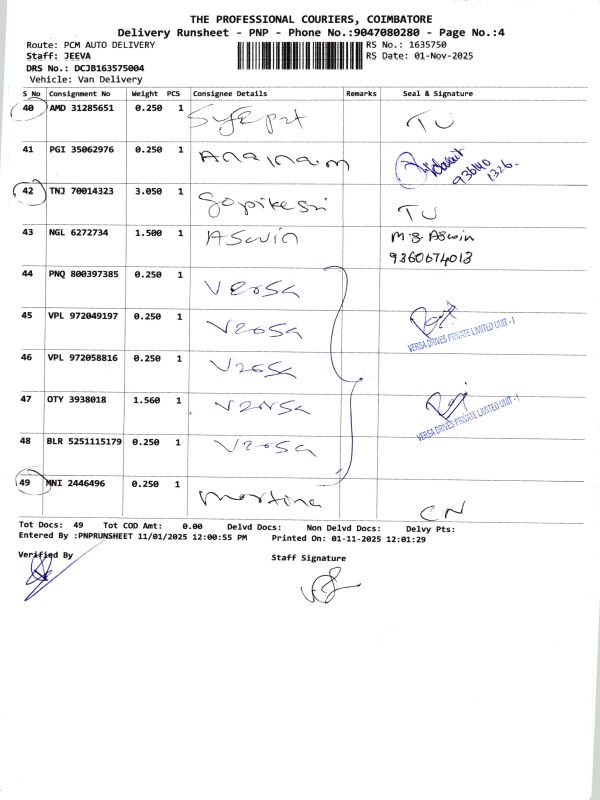 THE PROFESSIONAL COURIERS, COIMBATORE
Delivery Runsheet - PNP - Phone No.:9047080280 - Page No.:4
Route: PCM AUTO DELIVERY RS No.: 1635750
Staff: JEEVA RS Date: 01-Nov-2025
DRS No.: DCJB163575004
Vehicle: Van Delivery
S No Consignment No Weight PCS Consignee Details Remarks Seal & Signature
40 AMD 31285651 0.250 1 TU
41 PGI 35062976 0.250 1
42 TNJ 70014323 3.050 1 Gopikesri TU
43 NGL 6272734 1.500 1 ASwin M.S ASwin
9360674013
44 PNQ 800397385 0.250 1 Versa
45 VPL 972049197 0.250 1 Versa
VERSA DRIVES PRIVATE LIMITED UNIT - I
46 VPL 972058816 0.250 1 Versa
47 OTY 3938018 1.560 1 Versa
VERSA DRIVES PRIVATE LIMITED UNIT - I
48 BLR 5251115179 0.250 1 Versa
49 MNI 2446496 0.250 1 Martina CN
Tot Docs: 49 Tot COD Amt: 0.00 Delvd Docs: Non Delvd Docs: Delvy Pts:
Entered By :PNPRUNSHEET 11/01/2025 12:00:55 PM Printed On: 01-11-2025 12:01:29
Verified By Staff Signature